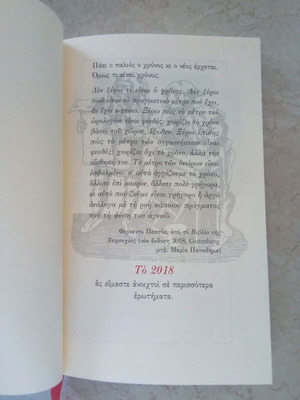 Πάει ὁ παλιὸς ὁ χρόνος κι ὁ νέος ἔρχεται.
Ὅμως τί εἶναι χρόνος;
Δὲν ξέρω τί εἶναι ὁ χρόνος. Δὲν ξέρω
ποιὸ εἶναι τὸ πραγματικὸ μέτρο ποὺ ἔχει,
ἂν ἔχει κάποιο. Ξέρω πὼς τὸ μέτρο τοῦ
ὡρολογίου εἶναι ψευδές: χωρίζει τὸ χρόνο
βάσει τοῦ χώρου, ἔξωθεν. Ξέρω ἐπίσης
πὼς τὸ μέτρο τῶν συγκινήσεων εἶναι
ψευδές: χωρίζει ὄχι τὸ χρόνο, ἀλλὰ τὴν
αἴσθησή του. Τὸ μέτρο τῶν ὀνείρων εἶναι
ἐσφαλμένο· σ' αὐτὰ ἀγγίζουμε τὸ χρόνο,
ἄλλοτε ἐπὶ μακρόν, ἄλλοτε πολὺ γρήγορα,
κι αὐτὸ ποὺ ζοῦμε εἶναι γρήγορο ἢ ἀργὸ
ἀνάλογα μὲ τὴ ροὴ κάποιου πράγματος
ποὺ τὴ φύση του ἀγνοῶ.
Φερνάντο Πεσσόα, ἀπὸ τὸ Βιβλίο τῆς
Ἀνησυχίας (νέα ἔκδοση 2018, Gutenberg
μτφ. Μαρία Παπαδήμα)
Τὸ 2018
ἂς εἴμαστε ἀνοιχτοὶ σὲ περισσότερα
ἐρωτήματα.